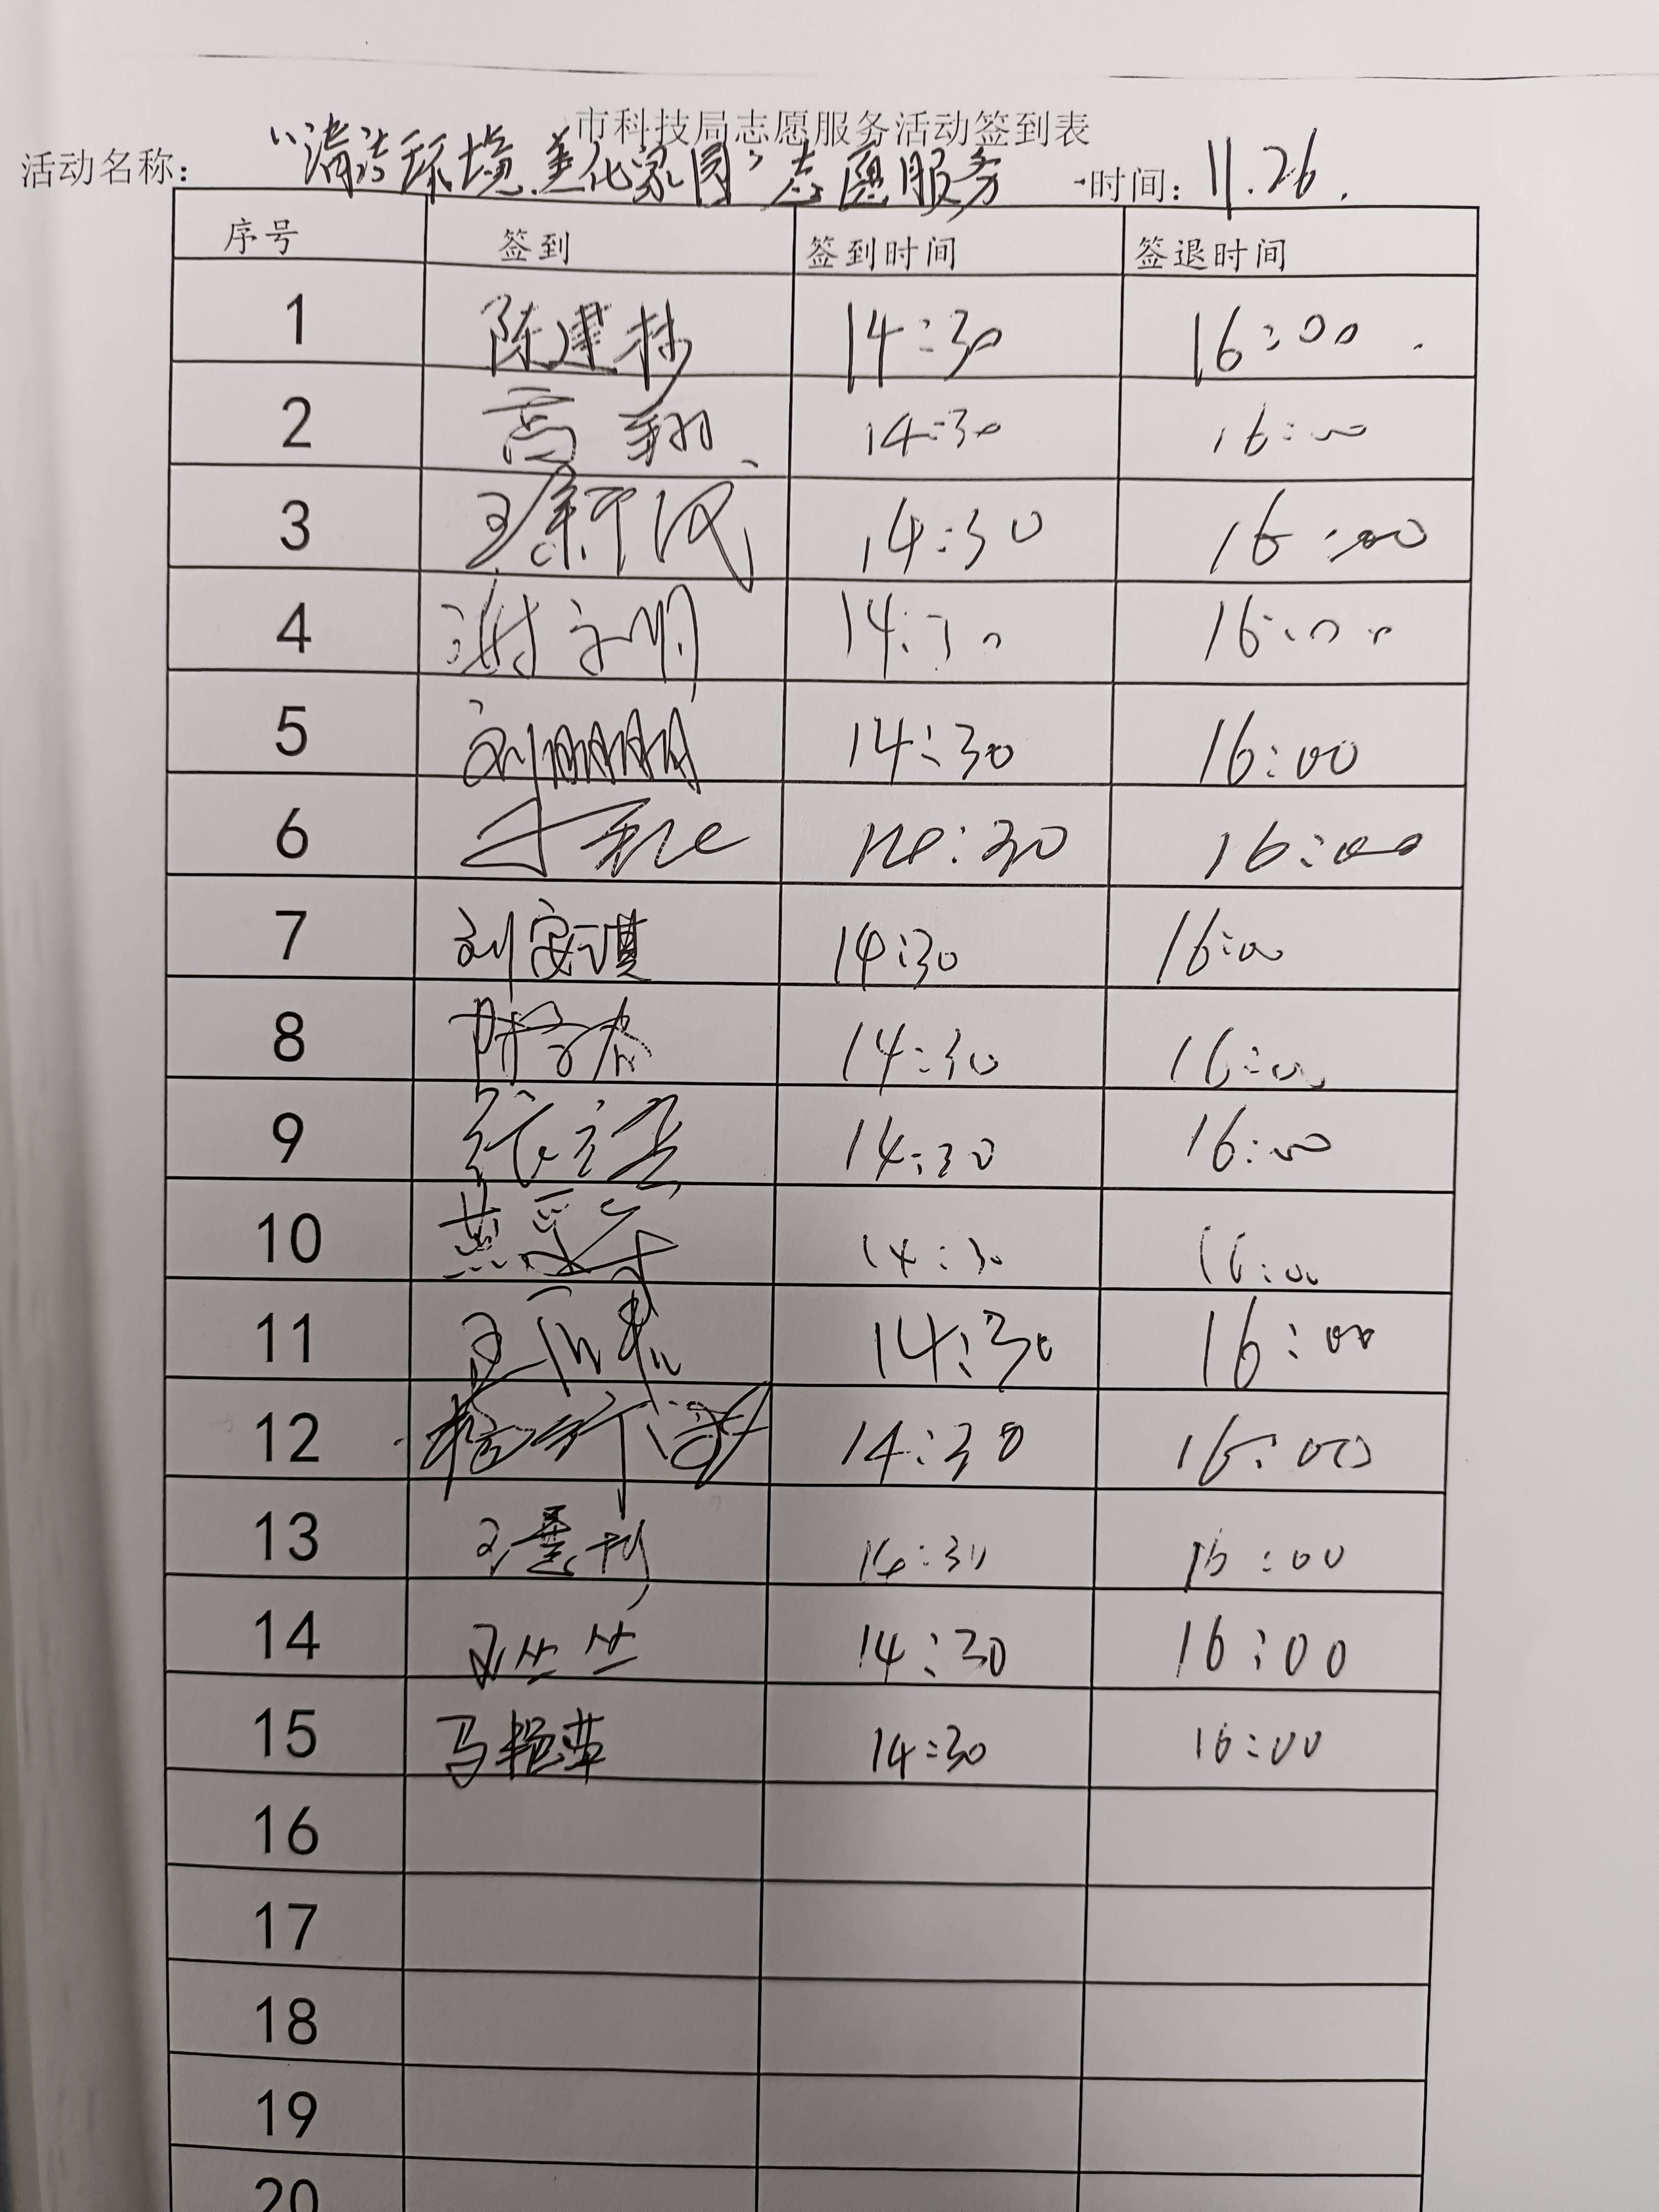 市科技局志愿服务活动签到表
活动名称： “清洁环境.美化家园”志愿服务 时间： 11.26.
序号 签到 签到时间 签退时间
1 陈建 14:30 16:00
2 高翔 14:30 16:00
3 王 14:30 16:00
4 谢文明 14:30 16:00
5 刘 14:30 16:00
6 14:30 16:00
7 刘安琪 14:30 16:00
8 14:30 16:00
9 张 14:30 16:00
10 黄 14:30 16:00
11 王 14:30 16:00
12 14:30 16:00
13 王 14:30 16:00
14 王丛丛 14:30 16:00
15 马艳萍 14:30 16:00
16
17
18
19
20